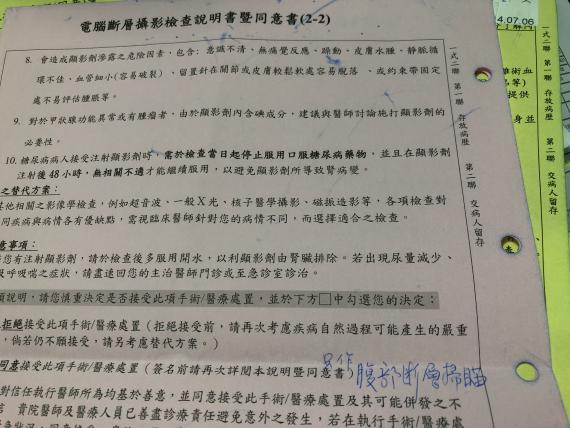 電腦斷層攝影檢查說明書暨同意書(2-2)
8. 會造成顯影劑滲露之危險因素，包含：意識不清、無痛覺反應、躁動、皮膚水腫、靜脈循
環不佳、血管細小(容易破裂)、留置針在關節或皮膚較鬆軟處容易脫落、或約束帶固定
處不易評估腫脹等。
9. 對於甲狀腺功能異常或有腫瘤者，由於顯影劑內含碘成分，建議與醫師討論施打顯影劑的
必要性。
10. 糖尿病病人接受注射顯影劑時，需於檢查當日起停止服用口服糖尿病藥物，並且在顯影劑
注射後48小時，無相關不適才能繼續服用，以避免顯影劑所導致腎病變。
之替代方案：
其他相關之影像學檢查，例如超音波、一般X光、核子醫學攝影、磁振造影等，各項檢查對
同疾病與病情各有優缺點，需視臨床醫師針對您的病情不同，而選擇適合之檢查。
意事項：
您有注射顯影劑，請於檢查後多服用開水，以利顯影劑由腎臟排除。若出現尿量減少、
吸呼吸喘之症狀，請盡速回您的主治醫師門診或至急診室診治。
說明，請您慎重決定是否接受此項手術/醫療處置，並於下方□中勾選您的決定：
拒絕接受此項手術/醫療處置（拒絕接受前，請再次考慮疾病自然過程可能產生的嚴重
，倘若仍不願接受，請另考慮替代方案。）
同意接受此項手術/醫療處置（簽名前請再次詳閱本說明暨同意書）
只作腹部斷層掃瞄
對信任執行醫師所為均基於善意，並同意接受此手術/醫療處置及其可能併發之不
貴院醫師及醫療人員已善盡診療責任避免意外之發生，若在執行手術/醫療處
一式二聯 第一聯 存放病歷 第二聯 交病人留存
14.07.06
一式二聯 第一聯 存放病歷 第二聯 交病人留存
術血
等)
提供
身並